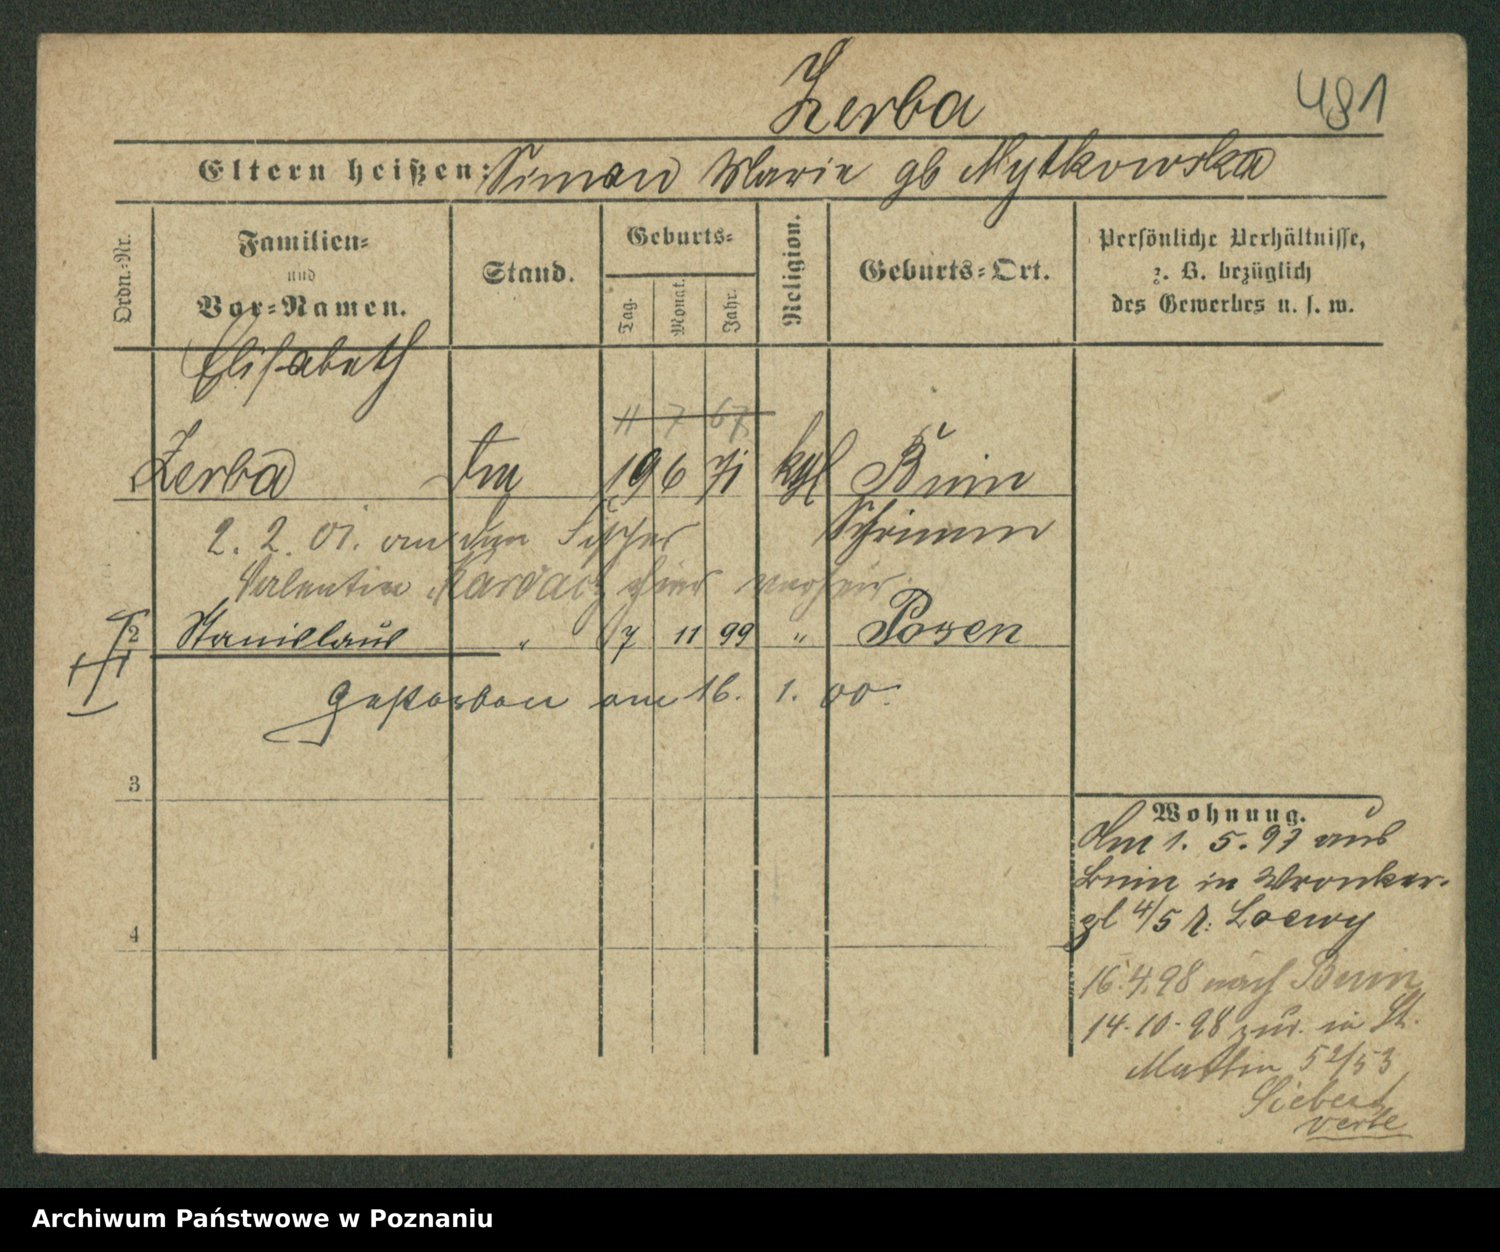 Zerba
481
Eltern heißen: Simon Marie gb Mytkowska
Ordn.-Nr.
Familien-
und
Vor-Namen.
Stand.
Geburts-
Tag.
Monat.
Jahr.
Religion.
Geburts-Ort.
Persönliche Verhältnisse,
z. B. bezüglich
des Gewerbes u. s. w.
Elisabeth
11 7 67
Zerba 19 6 71 kgl Bnin
Schrimm
2. 2. 01. an den Fischer
Valentin hier verheir.
2 Stanislaus " 17 11 99 " Posen
Gestorben am 16. 1. 00.
3
4
Wohnung.
Am 1. 5. 97 aus
Bnin in Wronker-
pl 4/5 b. Loewy
16.4.98 nach Bnin
14.10.98 zur. in St.
Martin 52/53
Siebert
verte
Archiwum Państwowe w Poznaniu